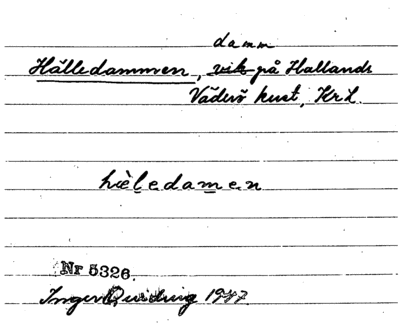 damm
Hålledammen, vik på Hallands
Väderö kust, Kr L.
hèl̲e̲dam̲en
Nr 5326.
Inger Quiding 1947